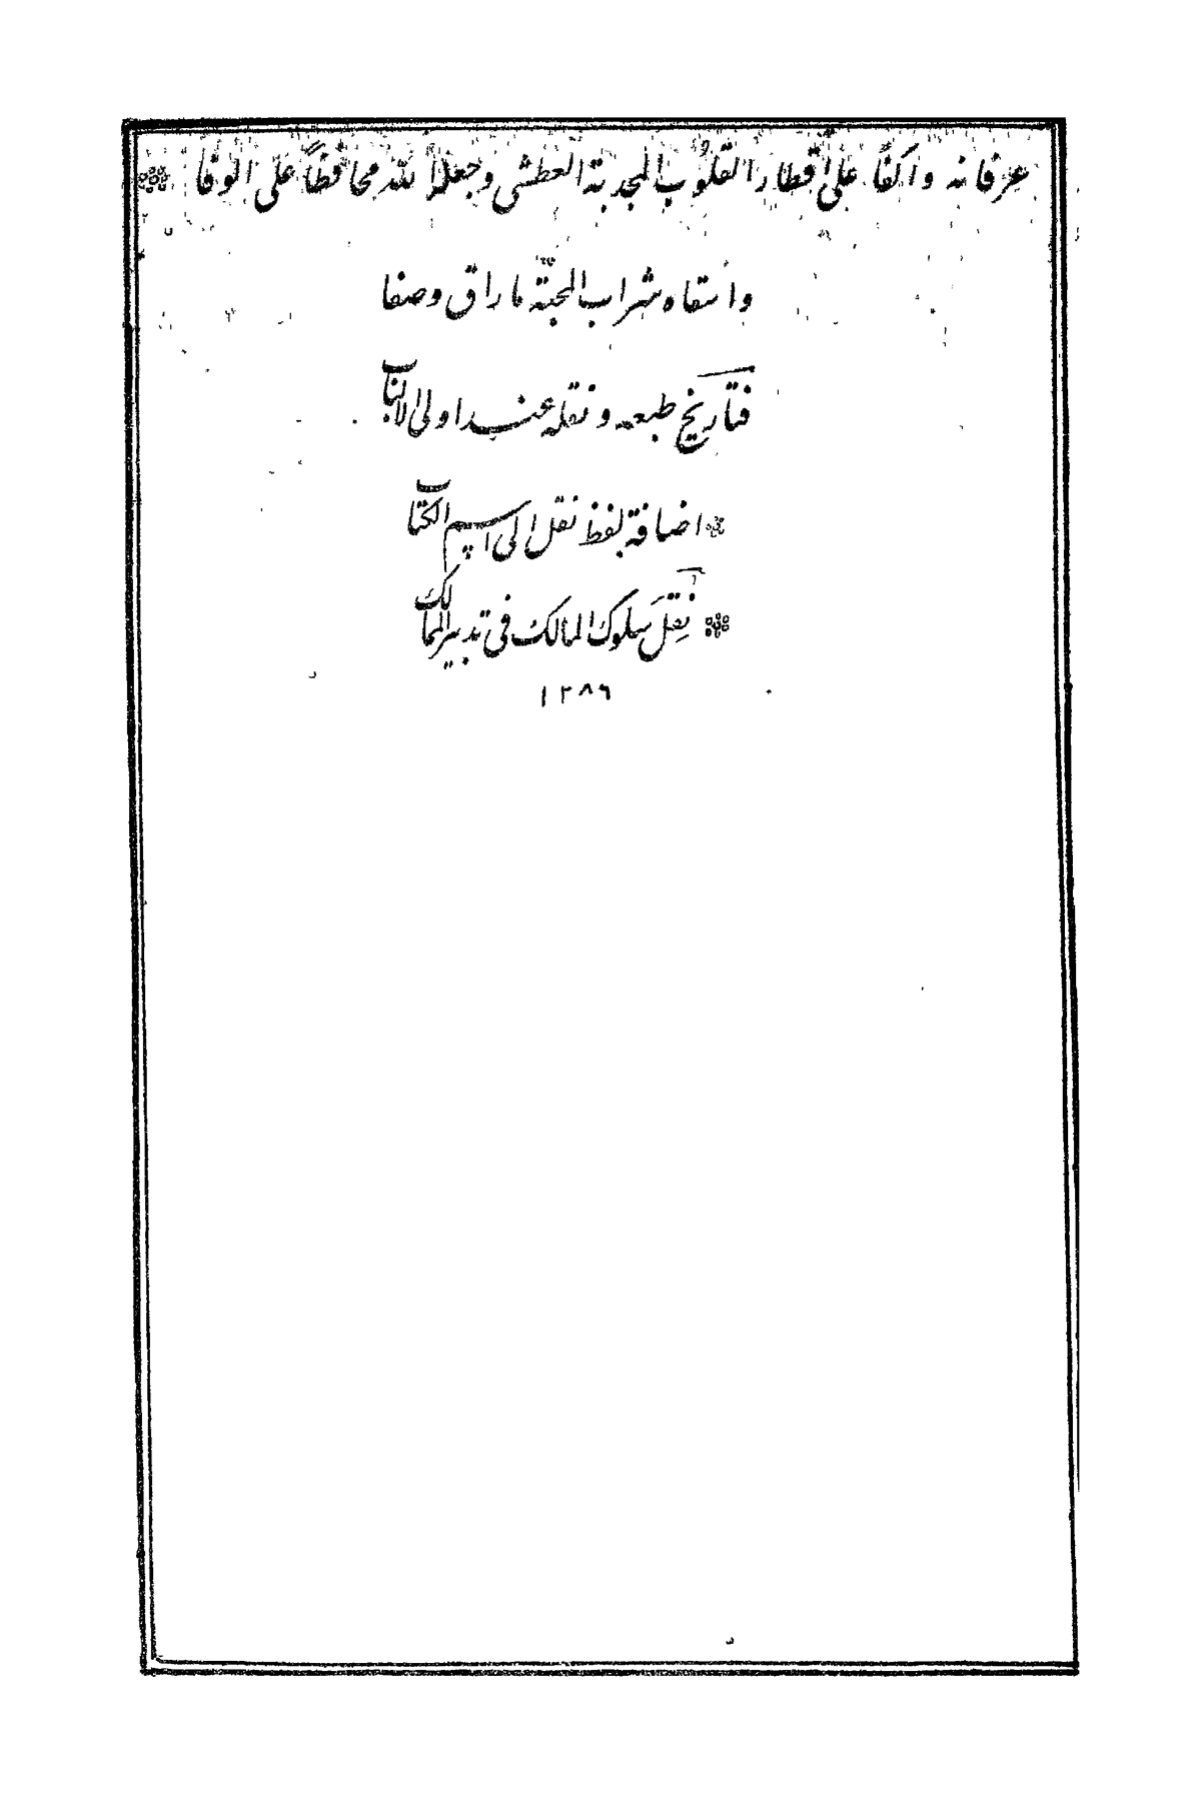 عرفانه واكفًا على أقطار القلوب المجدبة العطشى وجعله الله محافظًا على الوفا
واسقاه شراب المحبّة ما راق وصفا
فتاريخ طبعه ونقله عند اولى الالباب
اضافة لفظ نقل الى اسم الكتاب
نقل سلوك المالك فى تدبير الممالك
١٢٨٦